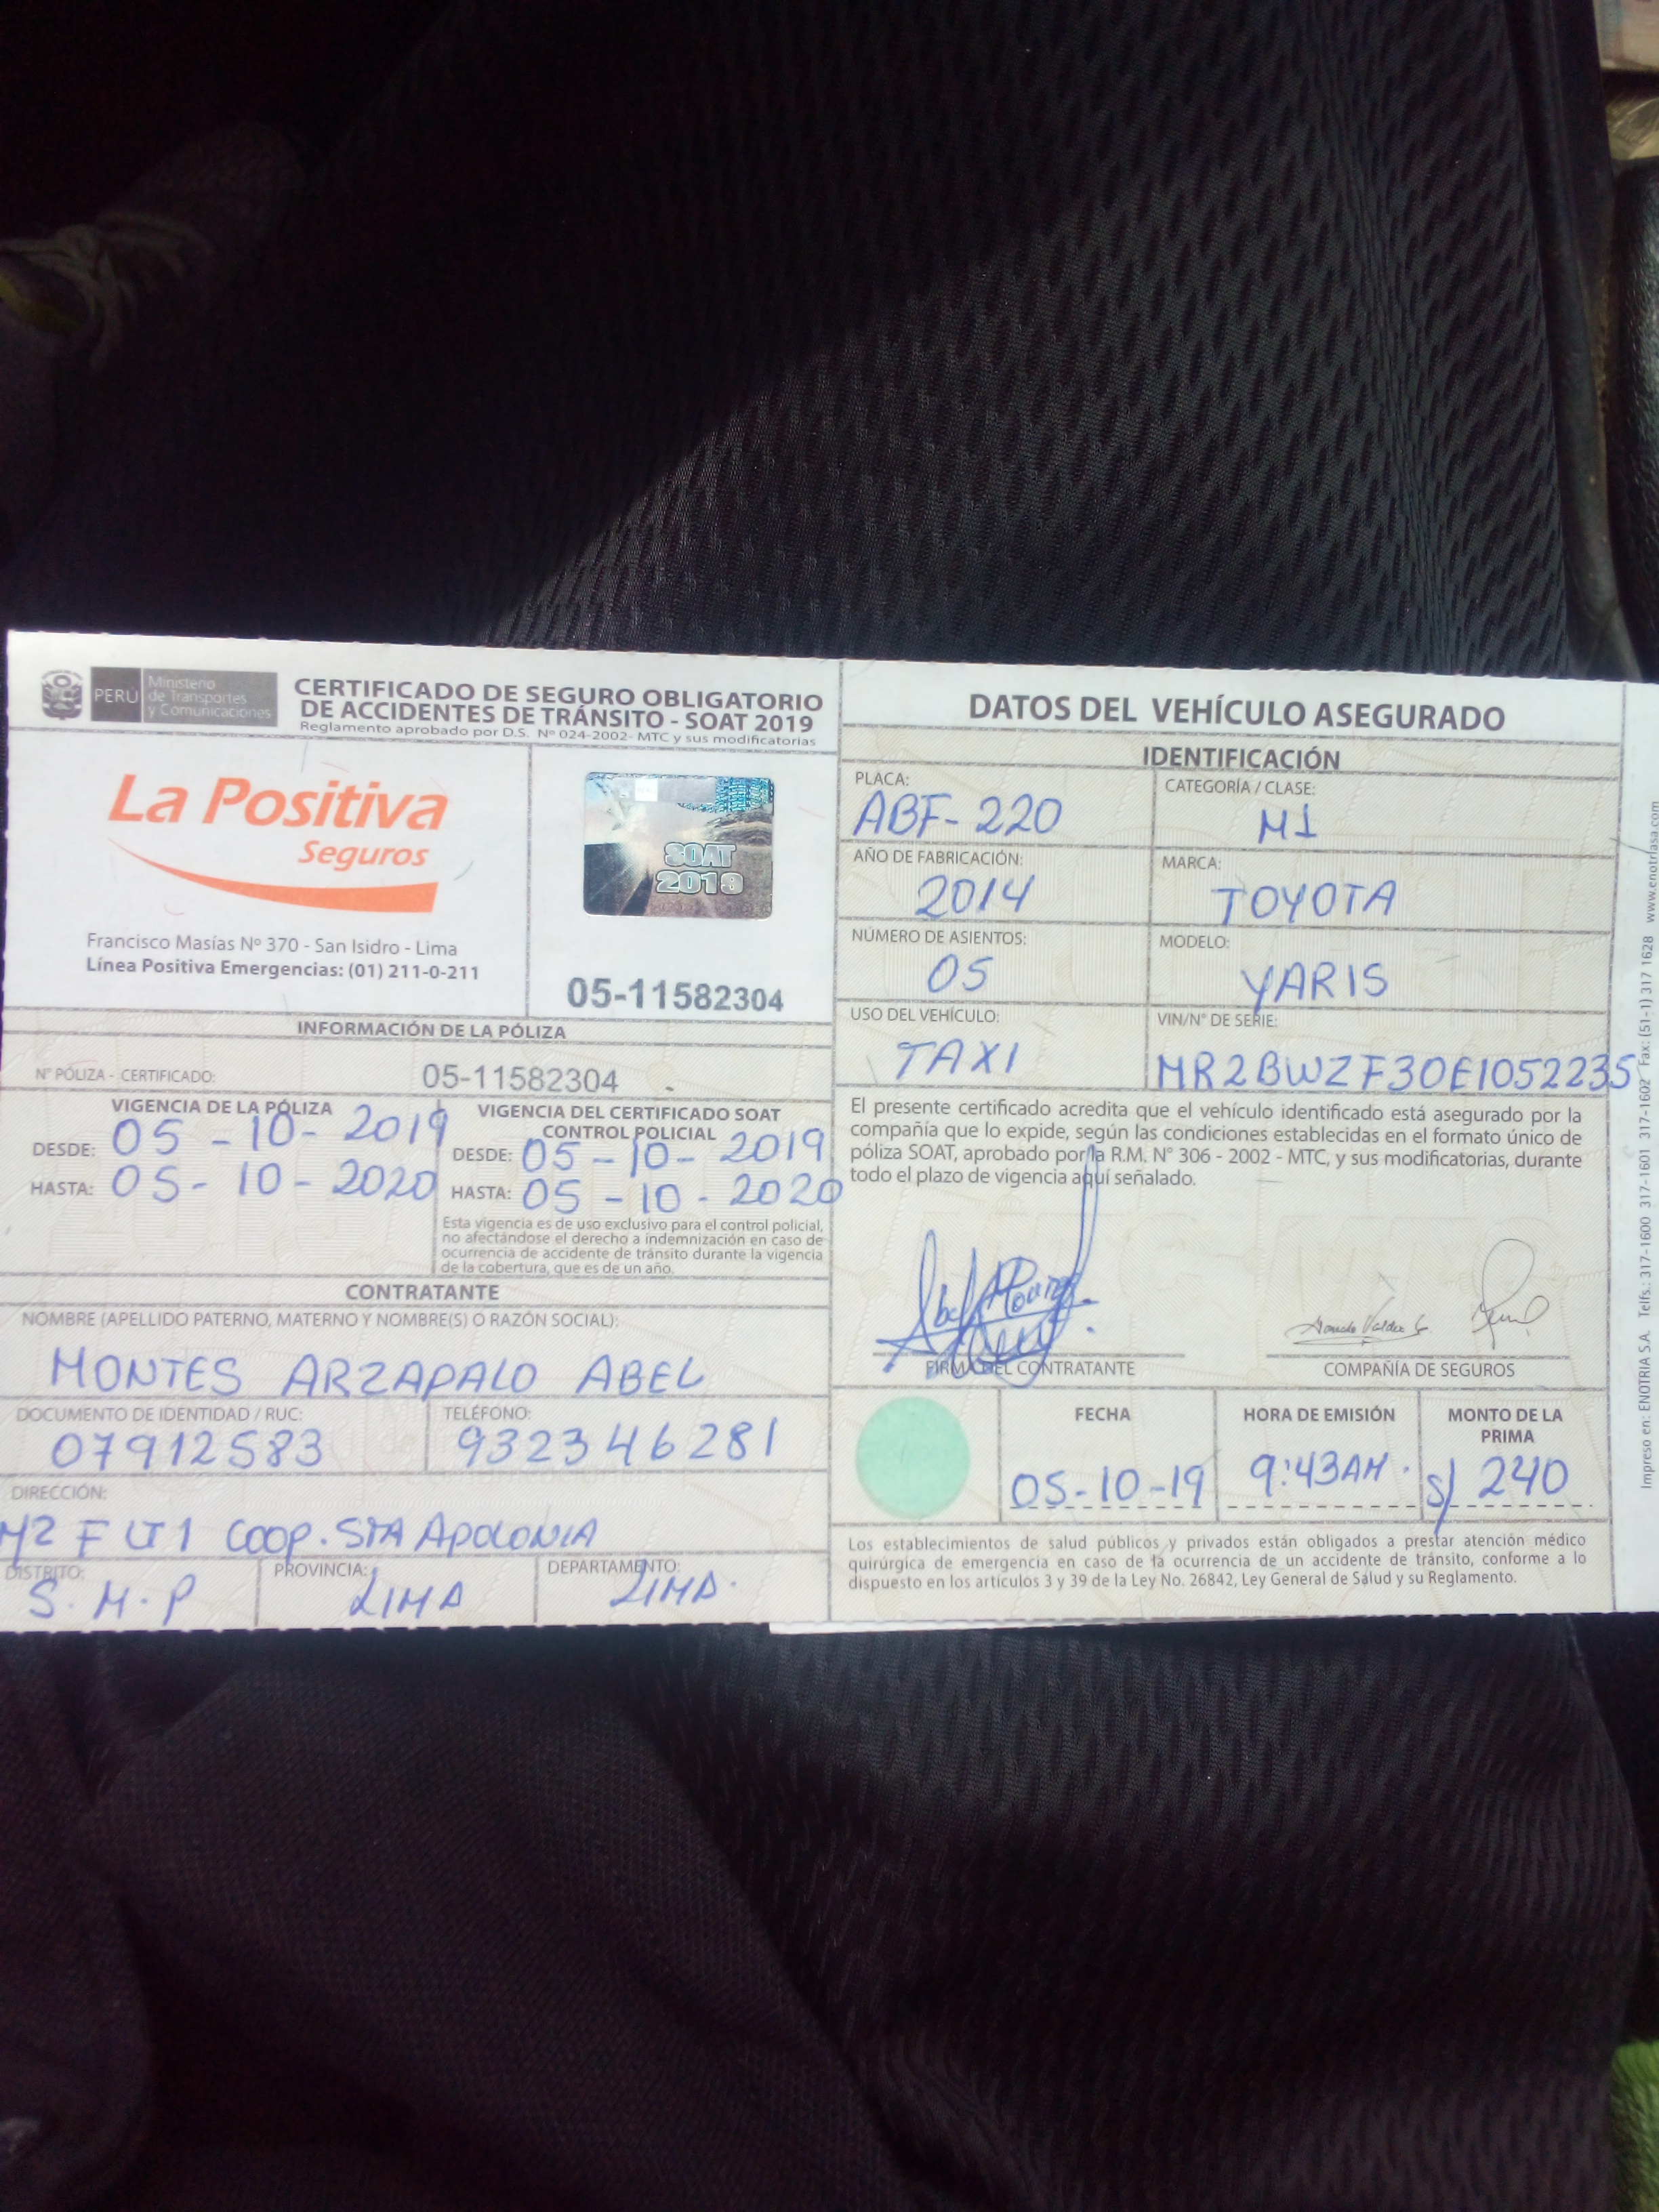 PERÚ
Ministerio
de Transportes
y Comunicaciones
CERTIFICADO DE SEGURO OBLIGATORIO
DE ACCIDENTES DE TRÁNSITO - SOAT 2019
Reglamento aprobado por D.S. Nº 024-2002- MTC y sus modificatorias
La Positiva
Seguros
Francisco Masías Nº 370 - San Isidro - Lima
Línea Positiva Emergencias: (01) 211-0-211
SOAT
2019
05-11582304
INFORMACIÓN DE LA PÓLIZA
Nº PÓLIZA - CERTIFICADO: 05-11582304
VIGENCIA DE LA PÓLIZA
DESDE: 05 - 10 - 2019
HASTA: 05 - 10 - 2020
VIGENCIA DEL CERTIFICADO SOAT
CONTROL POLICIAL
DESDE: 05 - 10 - 2019
HASTA: 05 - 10 - 2020
Esta vigencia es de uso exclusivo para el control policial,
no afectándose el derecho a indemnización en caso de
ocurrencia de accidente de tránsito durante la vigencia
de la cobertura, que es de un año.
CONTRATANTE
NOMBRE (APELLIDO PATERNO, MATERNO Y NOMBRE(S) O RAZÓN SOCIAL):
MONTES ARZAPALO ABEL
DOCUMENTO DE IDENTIDAD / RUC:
07912583
TELÉFONO:
932346281
DIRECCIÓN:
MZ F LT 1 COOP. STA APOLONIA
DISTRITO:
S.M.P
PROVINCIA:
LIMA
DEPARTAMENTO:
LIMA.
DATOS DEL VEHÍCULO ASEGURADO
IDENTIFICACIÓN
PLACA:
ABF-220
CATEGORÍA / CLASE:
M1
AÑO DE FABRICACIÓN:
2014
MARCA:
TOYOTA
NÚMERO DE ASIENTOS:
05
MODELO:
YARIS
USO DEL VEHÍCULO:
TAXI
VIN/N° DE SERIE:
MR2BWZF30E1052235
El presente certificado acredita que el vehículo identificado está asegurado por la
compañía que lo expide, según las condiciones establecidas en el formato único de
póliza SOAT, aprobado por la R.M. N° 306 - 2002 - MTC, y sus modificatorias, durante
todo el plazo de vigencia aquí señalado.
FIRMA DEL CONTRATANTE
COMPAÑÍA DE SEGUROS
FECHA
05-10-19
HORA DE EMISIÓN
9:43AM.
MONTO DE LA
PRIMA
S/ 240
Los establecimientos de salud públicos y privados están obligados a prestar atención médico
quirúrgica de emergencia en caso de la ocurrencia de un accidente de tránsito, conforme a lo
dispuesto en los artículos 3 y 39 de la Ley No. 26842, Ley General de Salud y su Reglamento.
Impreso en: ENOTRIA S.A. Telfs.: 317-1600 317-1601 317-1602 Fax: (51-1) 317 1628 www.enotriasa.com